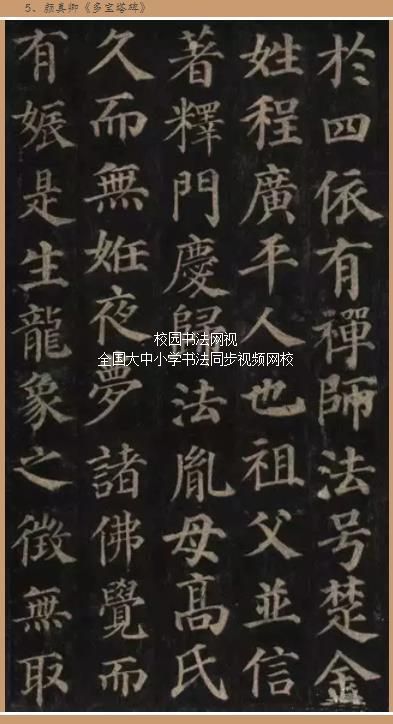 5、颜真卿《多宝塔碑》
於四依有禪師法号楚金
姓程廣平人也祖父並信
著釋門慶歸法胤母髙氏
久而無姙夜夢諸佛覺而
有娠是生龍象之徵無取
校园书法网视
全国大中小学书法同步视频网校